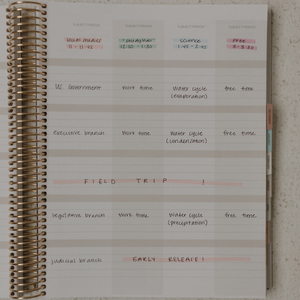 social studies
science
free
US government
work time
water cycle
(evaporation)
free time
executive branch
work time
water cycle
(condensation)
free time
FIELD TRIP !
legislative branch
work time
water cycle
(precipitation)
free time
judicial branch
EARLY RELEASE!